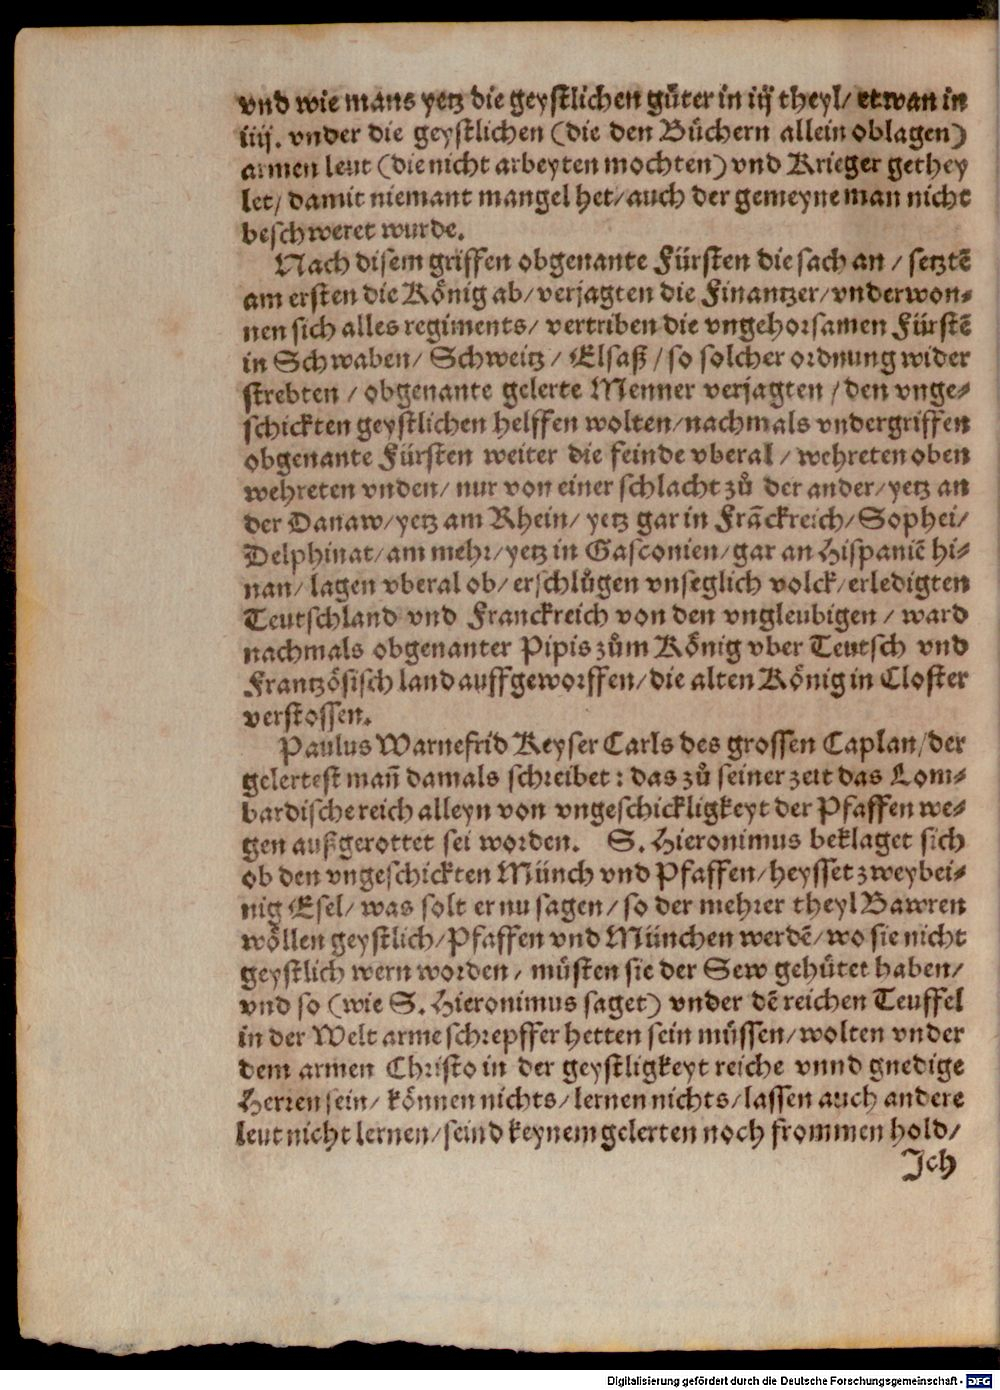 vnd wie mans yetz die geystlichen gu̎ter in iij theyl/ etwan in
iiij. vnder die geystlichen (die den Bůchern allein oblagen)
armen leut (die nicht arbeyten mochten) vnd Krieger gethey
let/ damit niemant mangel het/ auch der gemeyne man nicht
beschweret wurde.
Nach disem griffen obgenante Fürsten die sach an / setztē
am ersten die König ab/ verjagten die Finantzer/ vnderwon⸗
nen sich alles regiments/ vertriben die vngehorsamen Fürstē
in Schwaben/ Schweitz / Elsaß / so solcher ordnung wider
strebten / obgenante gelerte Menner verjagten / den vnge⸗
schickten geystlichen helffen wolten/ nachmals vndergriffen
obgenante Fürsten weiter die feinde vberal / wehreten oben
wehreten vnden/ nur von einer schlacht zů der ander/ yetz an
der Danaw/ yetz am Rhein/ yetz gar in Frāckreich/ Sophei/
Delphinat/ am mehr/ yetz in Gasconien/ gar an Hispaniē hi⸗
nan/ lagen vberal ob/ erschlůgen vnseglich volck/ erledigten
Teutschland vnd Franckreich von den vngleubigen / ward
nachmals obgenanter Pipis zům König vber Teutsch vnd
Frantzösisch land auffgeworffen/ die alten König in Closter
verstossen.
Paulus Warnefrid Keyser Carls des grossen Caplan/ der
gelertest mañ damals schreibet: das zů seiner zeit das Lom⸗
bardische reich alleyn von vngeschickligkeyt der Pfaffen we⸗
gen außgerottet sei worden. S. Hieronimus beklaget sich
ob den vngeschickten Münch vnd Pfaffen/ heysset zweybei⸗
nig Esel/ was solt er nu sagen/ so der mehrer theyl Bawren
wöllen geystlich/ Pfaffen vnd München werdē/ wo sie nicht
geystlich wern worden, müsten sie der Sew gehütet haben/
vnd so (wie S. Hieronimus saget) vnder dē reichen Teuffel
in der Welt arme schrepffer hetten sein müssen/ wolten vnder
dem armen Christo in der geystligkeyt reiche vnnd gnedige
Herren sein/ können nichts/ lernen nichts/ lassen auch andere
leut nicht lernen/ seind keynem gelerten noch frommen hold/
Jch
Digitalisierung gefördert durch die Deutsche Forschungsgemeinschaft - DFG